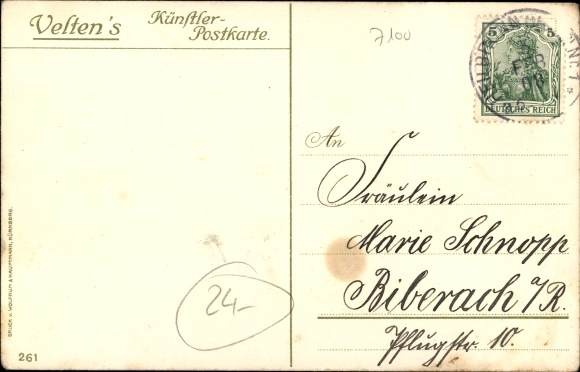 Velten's
Künstler-
Postkarte.
7100
5 5
FEB
08
DEUTSCHES REICH
An
Fräulein
Marie Schnopp
Biberach a/R.
Pflugstr. 10.
24-
DRUCK v. WOLFRUM & HAUPTMANN, NÜRNBERG.
261